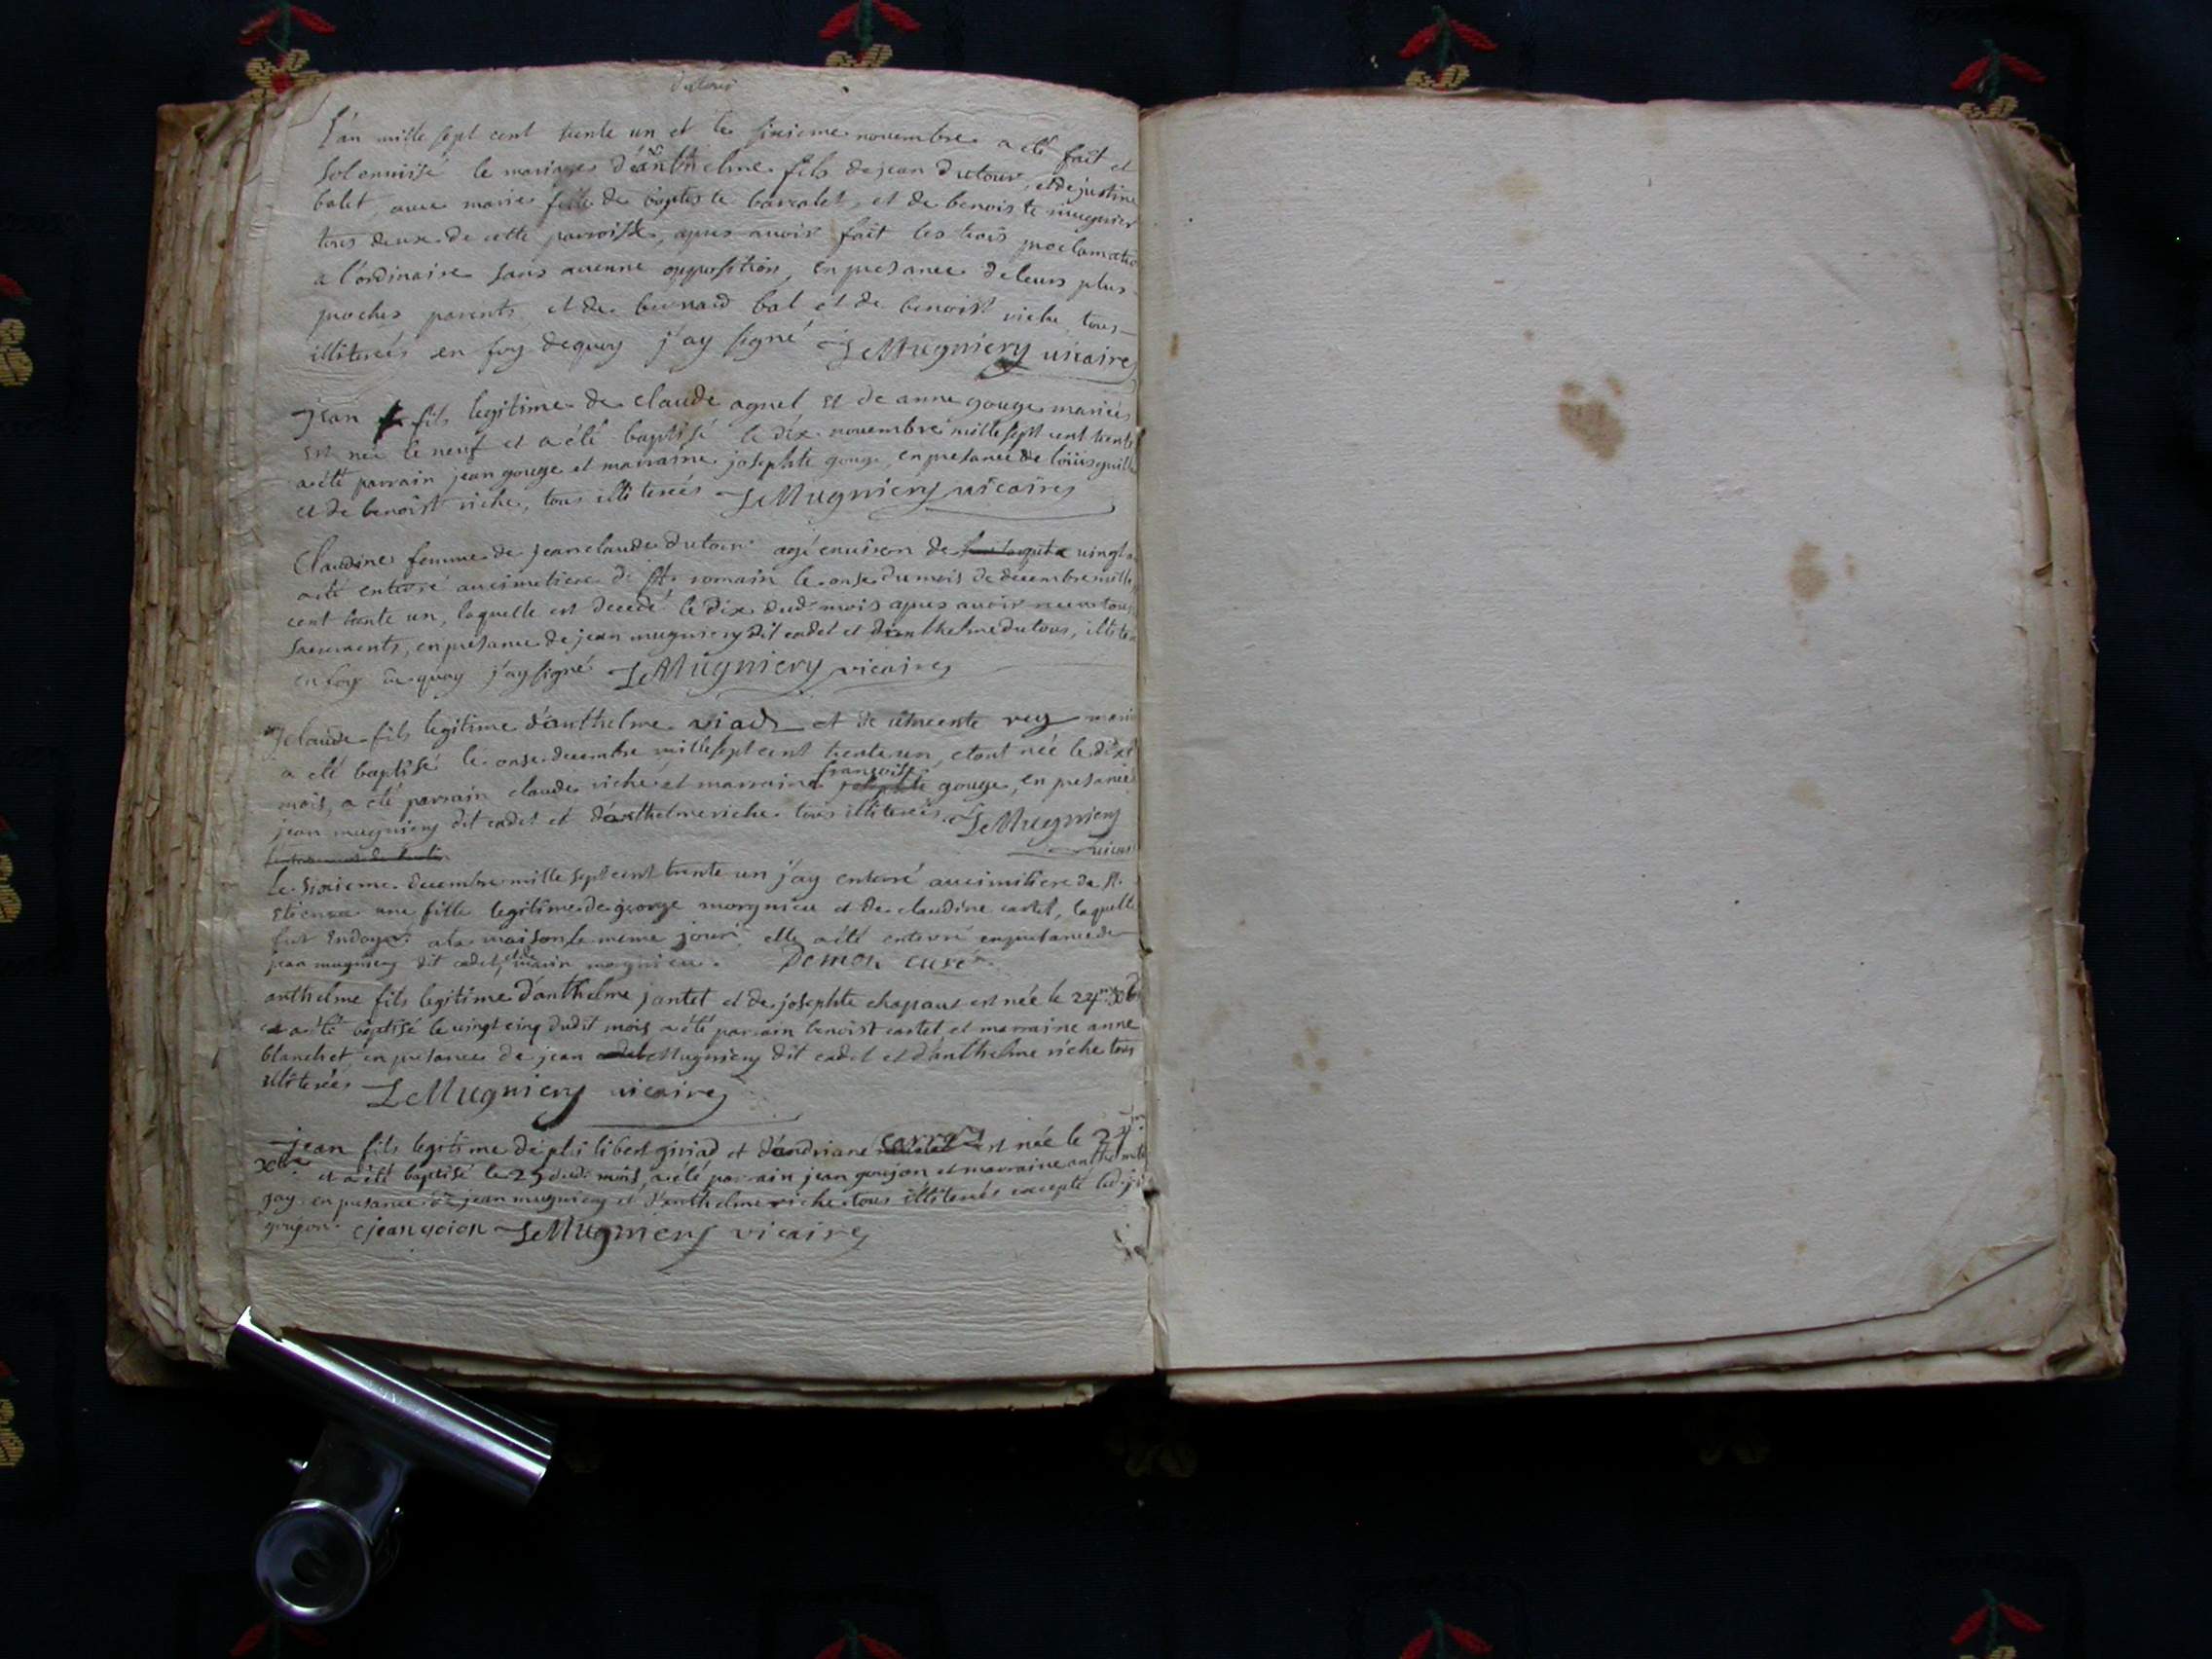 dutour
L'an mille sept cent trente un et le sixieme novembre a eté fait et
solennisé le mariage d'anthelme fils de jean dutour, et de justine
balet, avec marie fille de baptiste barralet, et de benoiste mugnier
tous deux de cette parroisse, apres avoir fait les trois proclamatio
a l'ordinaire sans aucune opposition, en presance de leurs plus
proches parents, et de bernard bal et de benoist riche, tous
illiterés en foy de quoy j'ay signé Le Mugniery vicaire
jean fils legitime de claude agnel et de anne gouge mariés
est née le neuf et a été baptisé le dix novembre mille sept cent trente
a été parrain jean gouge et marraine josephte gouge, en presance de loüis
et de benoist riche, tous illiterés Le Mugniery vicaire
Claudine femme de jean claude dutour agé environ de vingt
a été enterré au cimetiere de st romain le onse du mois de decembre mille
cent trente un, laquelle est decedé le dix dud mois apres avoir receu tous
sacrements, en presance de jean mugniery dit cadet et d'anthelme dutour, illite
en foy de quoy j'ay signé Le Mugniery vicaire
claude fils legitime d'anthelme viad et de vincente rey marié
a eté baptisé le onse decembre mille sept cent trente un, etant née le dix
mois, a eté parrain claude riche et marraine françoise gouge, en presance
jean mugniery dit cadet et d'anthelme riche tous illiterés Le Mugniery
vicaire
le sixieme decembre mille sept cent trente un j'ay enterré au cimitiere de st.
etienne une fille legitime de george morgnieu et de claudine castel, laquelle
fut endoyé a la maison le meme jour, elle a été enterré en presance de
jean mugniery dit cadet, et de morgnieu. Demon curé
anthelme fils legitime d'anthelme jantet et de josephte chapaur est née le 24me xb
et a été baptisé le vingt cinq dudit mois a été parrain benoist castel et marraine anne
blanchet, en presance de jean Mugniery dit cadet et d'anthelme riche tous
illiterés Le Mugniery vicaire
jean fils legitime de philibert guiad et d'andriane carrez est née le 24me
xbr et a été baptisé le 25 dud mois, a été parrain jean goujon et marraine anthelmette
gay en presance de jean mugniery et d'anthelme riche tous illiterés excepté led. j
goujon. jean goion Le Mugniery vicaire